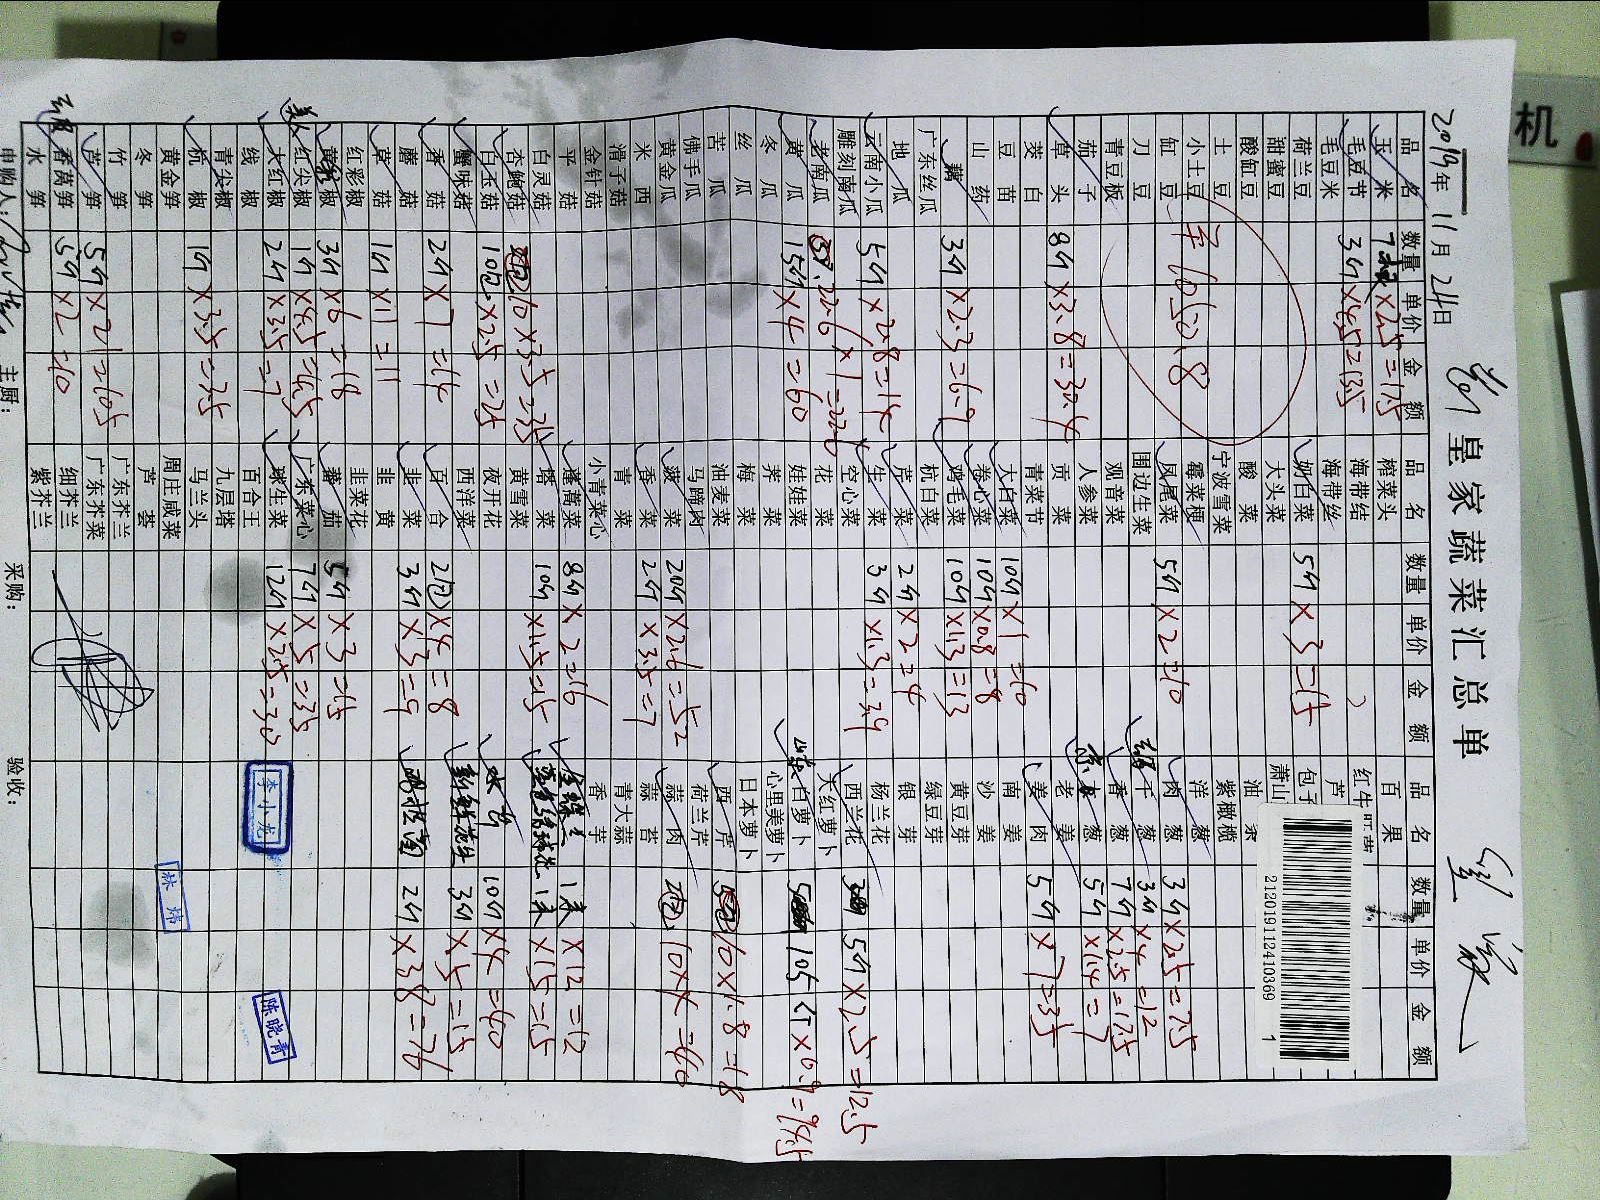 机
2019年 11月 24日
皇家蔬菜汇总单
品名 数量 单价 金额 品名 数量 单价 金额 品名 数量 单价 金额
玉米 ×2.5=17.5 榨菜头 百果
毛豆节 3斤×4.5=13.5 海带结 红牛
毛豆米 海带丝 芦
荷兰豆 奶白菜 5斤×3=15 包子
甜蜜豆 大头菜 萧山
酸缸豆 酸菜 油条
土豆 宁波雪菜 紫橄榄
小土豆 霉菜梗 洋葱
缸豆 凤尾菜 5斤×2=10 肉葱 3斤×2.5=7.5
刀豆 围边生菜 干葱 3斤×4=12
青豆板 观音菜 香葱 7斤×2.5=17.5
茄子 人参菜 京葱 5斤×1.4=7
草头 8斤×3.8=30.4 贡菜 老姜
茭白 青菜节 姜肉 5斤×7=35
豆苗 大白菜 10斤×1=10 南姜
山药 卷心菜 10斤×0.8=8 沙姜
藕 3斤×2.3=6.9 鸡毛菜 10斤×1.3=13 黄豆芽
广东丝瓜 杭白菜 绿豆芽
地瓜 芦菜 2斤×2=4 银芽
云南小瓜 5斤×2.8=14 生菜 3斤×1.3=3.9 杨兰花
雕刻南瓜 空心菜 西兰花 5斤×2.5=12.5
老南瓜 22.6×1=22.6 花菜 大红萝卜
黄瓜 15斤×4=60 娃娃菜 白萝卜 105斤×0.9=94.5
冬瓜 荠菜 心里美萝卜
丝瓜 梅菜 日本萝卜
苦瓜 油麦菜 西芹 10×1.8=18
佛手瓜 马蹄肉 荷兰芹
黄金瓜 菠菜 20斤×2.6=52 蒜肉 10×4=40
西米 香菜 2斤×3.5=7 蒜苔
滑子菇 青菜 青大蒜
金针菇 小青菜心 香芋
平菇 蓬蒿菜 8斤×2=16 1束×12=12
白灵菇 塔菜 10斤×1.5=15 1束×15=15
杏鲍菇 10×3.5=35 黄雪菜
白玉菇 10包×2.5=25 夜开花 10斤×4=40
蟹味菇 西洋菜 3斤×5=15
香菇 2斤×7=14 百合 2包×4=8
蘑菇 韭菜 3斤×3=9 2斤×38=76
草菇 1斤×11=11 韭黄
红彩椒 韭菜花
黄彩椒 3斤×6=18 蕃茄 5斤×3=15
红尖椒 1斤×6.5=6.5 广东菜心 7斤×5=35
大红椒 2斤×3.5=7 球生菜 12斤×2.5=30
线椒 百合王
青尖椒 九层塔
杭椒 1斤×3.5=3.5 马兰头
黄金笋 周庄咸菜
冬笋 芦荟
竹笋 广东芥兰
芦笋 5斤×21=105 广东芥菜
香莴笋 5斤×2=10 细芥兰
水笋 紫芥兰
申购人: 主厨: 采购: 验收:
李小龙
林炜
陈晓青
212019112410369 1